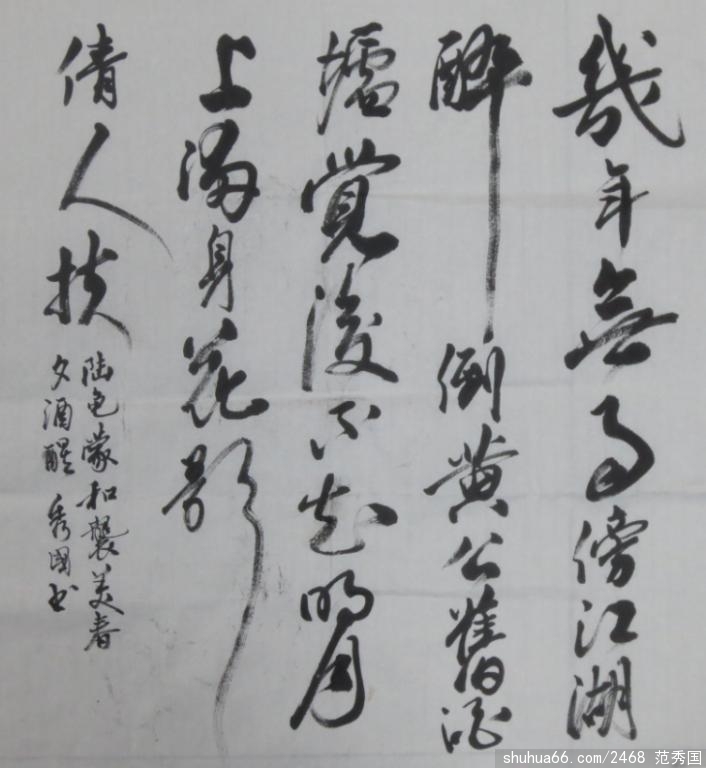 幾年無事傍江湖
醉倒黄公舊酒
壚覺後不知明月
上滿身花影
倩人扶
陆龟蒙和袭美春
夕酒醒 秀國书
shuhua66.com/2468 范秀国